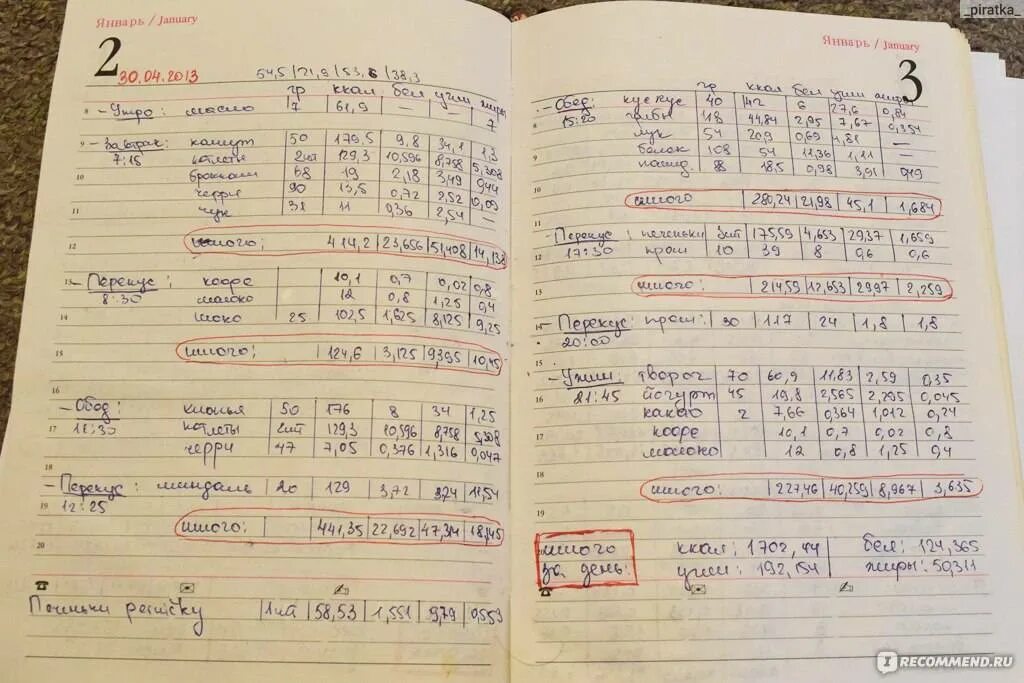 _piratka_
Январь / January
2
30.04.2013 54,5 | 21,9 | 53,6 | 38,3
гр ккал бел угли жиры
8 - Утро: масло 7 61,9 — — 7
9 - Завтрак: камут 50 179,5 9,8 34,1 1,3
7:15 котлеты 2шт 129,3 10,596 8,758 5,308
10 брокколи 68 19 2,18 3,49 0,44
черри 90 13,5 0,72 2,52 0,09
11 лук 31 11 0,36 2,54 —
12 итого: 414,2 23,656 51,408 14,138
13 - Перекус: кофе 10,1 0,7 0,02 0,8
8:30 молоко 12 0,8 1,25 0,4
14 шоко 25 102,5 1,625 8,125 9,25
15 итого: 124,6 3,125 9,395 10,45
16
- Обед: киноья 50 176 8 34 1,25
17 11:30 котлеты 2шт 129,3 10,596 8,758 5,308
черри 47 7,05 0,376 1,316 0,047
18
- Перекус: миндаль 20 129 3,72 3,24 11,54
19 12:25
итого: 441,35 22,692 47,314 18,145
20
Печеньки 1шт 58,53 1,551 9,79 0,553
Январь / January
3
гр ккал бел угли жиры
- Обед: кускус 40 142 6 27,6 0,84
8 15:20 грибы 118 44,84 2,95 7,67 0,354
лук 54 20,9 0,69 —
9 белок 108 54 11,36 1,11 —
88 18,5 0,98 3,91 0,19
10
итого 280,24 21,98 45,1 1,684
11
- Перекус: печеньки 3шт 175,59 4,653 29,37 1,659
12 17:30 прот 10 39 8 0,6 0,6
13 итого: 214,59 12,653 29,97 2,259
14 - Перекус: прот: 30 117 24 1,8 1,8
20:00
15
- Ужин: творог 70 60,9 11,83 2,59 0,35
16 21:45 йогурт 45 19,8 2,565 2,295 0,045
какао 2 7,66 0,364 1,012 0,24
17 кофе 10,1 0,7 0,02 0,8
молоко 12 0,8 1,25 0,4
18
итого: 227,46 40,259 8,967 3,635
19
итого ккал: 1702,44 бел: 124,365
за день: угли: 192,154 жиры: 50,311
IRECOMMEND.RU